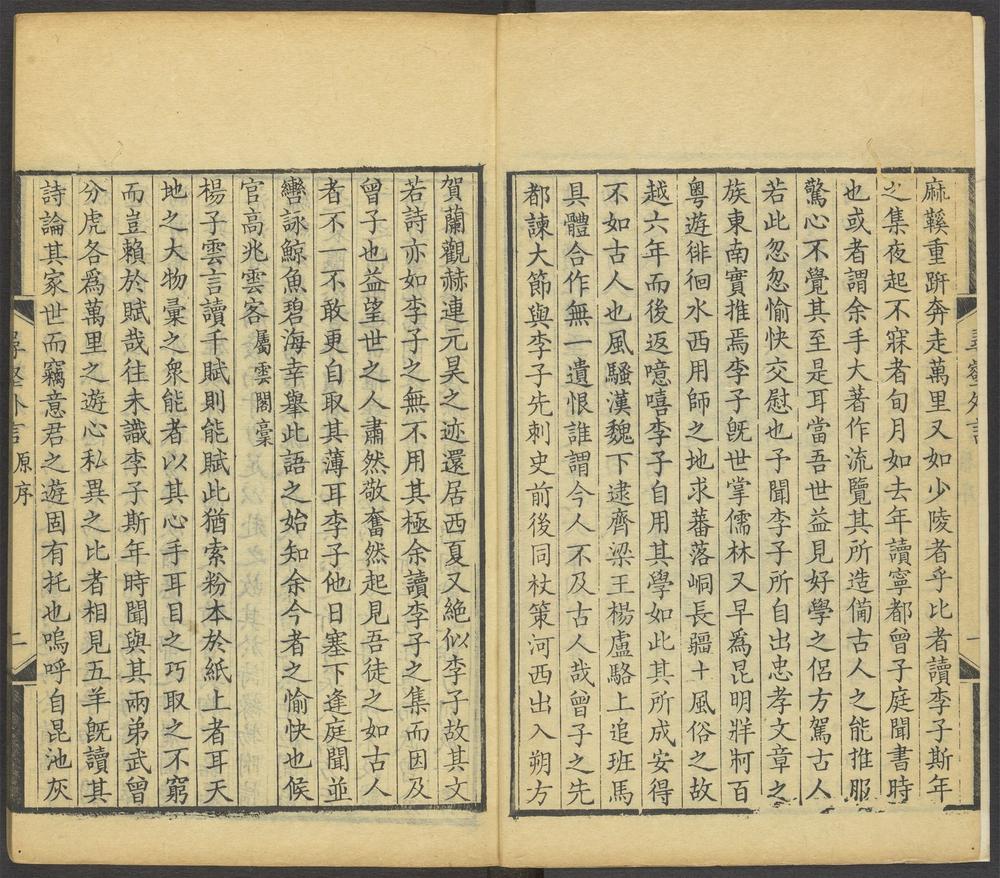 麻鞵重趼奔走萬里又如少陵者乎比者讀李子斯年
之集夜起不寐者旬月如去年讀寧都曾子庭聞書時
也或者謂余手大著作流覽其所造備古人之能推服
驚心不覺其至是耳當吾世益見好學之侶方駕古人
若此忽忽愉快交慰也予聞李子所自出忠孝文章之
族東南實推焉李子旣世掌儒林又早爲昆明牂牁百
粵遊徘徊水西用師之地求蕃落峒長疆土風俗之故
越六年而後返噫嘻李子自用其學如此其所成安得
不如古人也風騷漢魏下逮齊梁王楊盧駱上追班馬
具體合作無一遺恨誰謂今人不及古人哉曾子之先
都諫大節與李子先刺史前後同杖策河西出入朔方
賀蘭觀赫連元昊之迹還居西夏又絶似李子故其文
若詩亦如李子之無不用其極余讀李子之集而因及
曾子也益望世之人肅然敬奮然起見吾徒之如古人
者不一不敢更自取其薄耳李子他日塞下逢庭聞並
轡詠鯨魚碧海幸舉此語之始知余今者之愉快也候
官高兆雲客屬雲閣稾
楊子雲言讀千賦則能賦此猶索粉本於紙上者耳天
地之大物彙之衆能者以其心手耳目之巧取之不窮
而豈賴於賦哉往未識李子斯年時聞與其兩弟武曾
分虎各爲萬里之遊心私異之比者相見五羊旣讀其
詩論其家世而竊意君之遊固有托也嗚呼自昆池灰
外言 原序
二